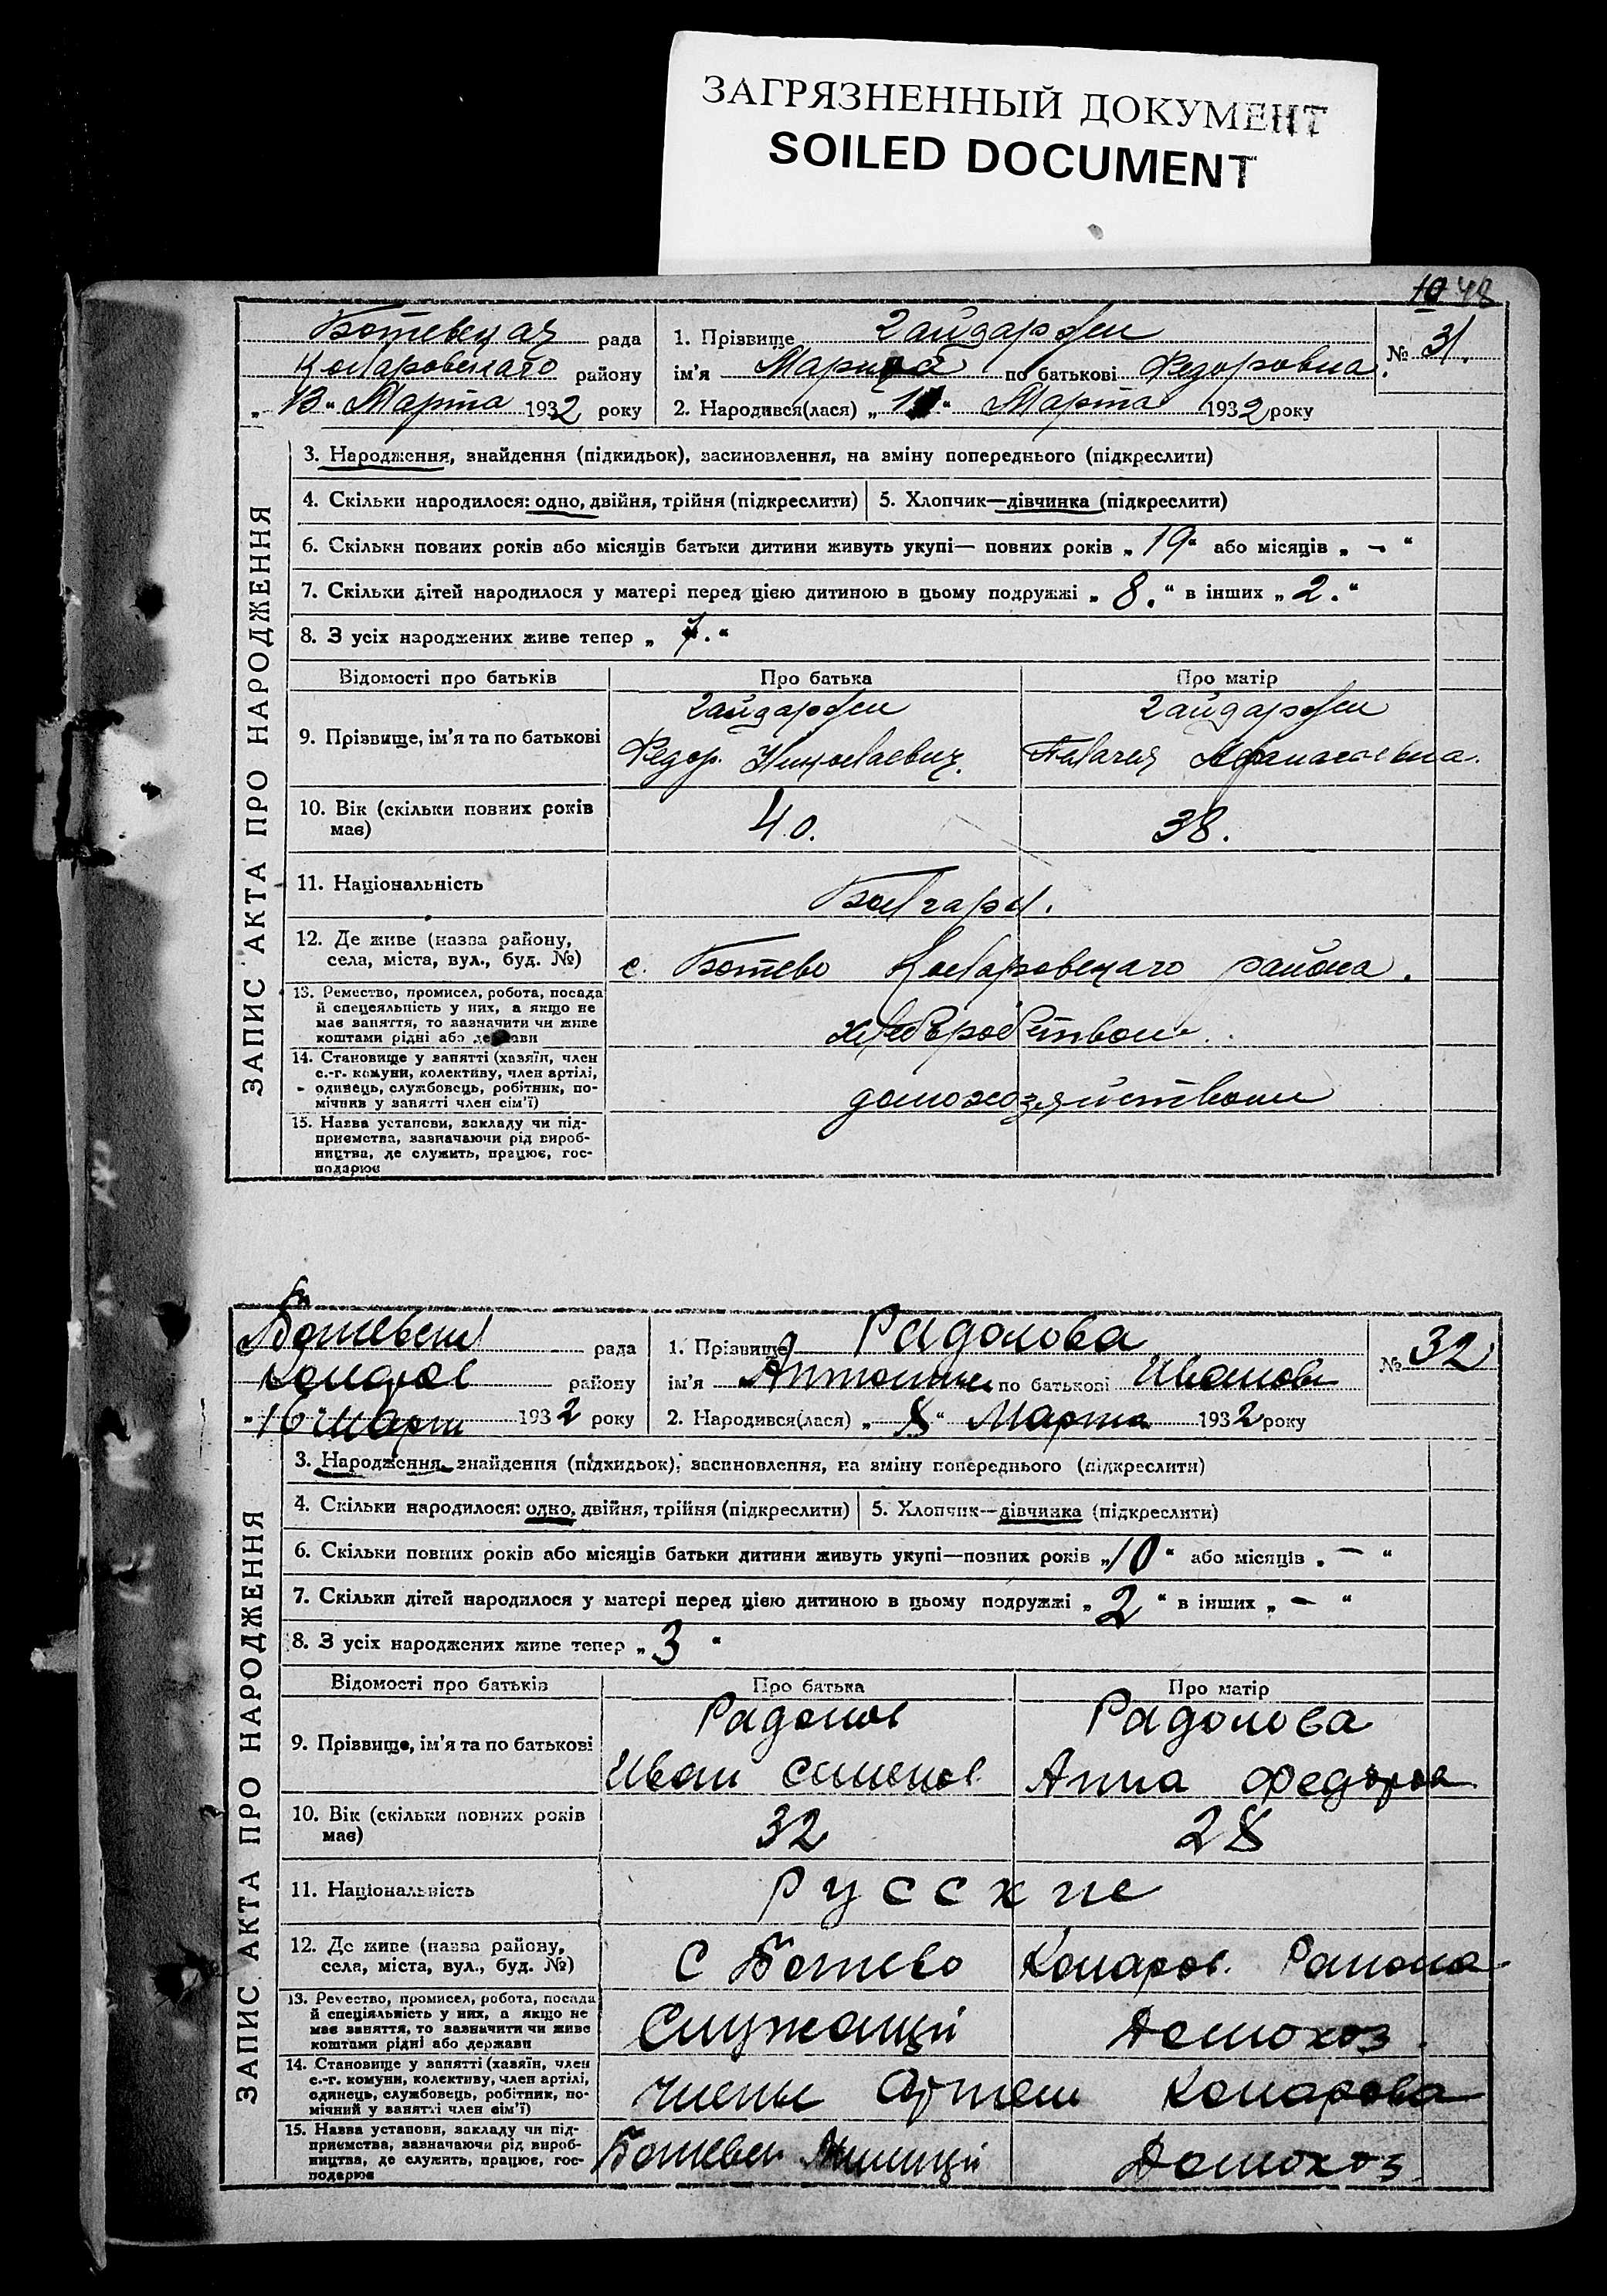 ЗАГРЯЗНЕННЫЙ ДОКУМЕНТ
SOILED DOCUMENT
10 48
Ботевская рада
района
"13" Марта 1932 року
1. Прізвище Гайдаржи
ім'я по батькові Федоровна.
2. Народився(лася) " " Марта 1932 року
№ 31.
ЗАПИС АКТА ПРО НАРОДЖЕННЯ
3. Народження, знайдення (підкидьок), засиновлення, на зміну попереднього (підкреслити)
4. Скільки народилося: одно, двійня, трійня (підкреслити) 5. Хлопчик—дівчинка (підкреслити)
6. Скільки повних років або місяців батьки дитини живуть укупі— повних років „ 19 " або місяців „ – "
7. Скільки дітей народилося у матері перед цією дитиною в цьому подружжі „ 8. " в інших „ 2. "
8. З усіх народжених живе тепер „ 7. "
Відомості про батьків Про батька Про матір
9. Прізвище, ім'я та по батькові
Гайдаржи Гайдаржи
Федор. Николаевич. Афанасьевна.
10. Вік (скільки повних років має) 40. 38.
11. Національність Болгары.
12. Де живе (назва району,
села, міста, вул., буд. №) с. Ботево района.
13. Ремество, промисел, робота, посада
й спецеяльність у них, а якщо не
має заняття, то зазначити чи живе
коштами рідні або держави
14. Становище у занятті (хазяїн, член
с.-г. комуни, колективу, член артілі,
одинець, службовець, робітник, по-
мічник у занятті член сім'ї)
домохозяйством
15. Назва установи, закладу чи під-
приємства, зазначаючи рід вироб-
ництва, де служить, працює, гос-
подарює
рада
району
"16" март 1932 року
1. Прізвище Радолова
ім'я Антонина по батькові Иванов
2. Народився(лася) „ 8 " Марта 1932 року
№ 32
ЗАПИС АКТА ПРО НАРОДЖЕННЯ
3. Народження, знайдення (підкидьок), засиновлення, на зміну попереднього (підкреслити)
4. Скільки народилося: одно, двійня, трійня (підкреслити) 5. Хлопчик—дівчинка (підкреслити)
6. Скільки повних років або місяців батьки дитини живуть укупі—повних років „ 10 " або місяців „ – "
7. Скільки дітей народилося у матері перед цією дитиною в цьому подружжі „ 2 " в інших „ – "
8. З усіх народжених живе тепер „ 3 "
Відомості про батьків Про батька Про матір
9. Прізвище, ім'я та по батькові
Радолов Радолова
Иван Семенов Анна Федоров
10. Вік (скільки повних років має) 32 28
11. Національність Русские
12. Де живе (назва району,
села, міста, вул., буд. №) С Ботево Коларов. Района
13. Ремество, промисел, робота, посада
й спеціяльність у них, а якщо не
має заняття, то зазначити чи живе
коштами рідні або держави
Служащий Домохоз.
14. Становище у занятті (хазяїн, член
с.-г. комуни, колективу, член артілі,
одинець, службовець, робітник, по-
мічний у занятті член сім'ї)
члены Артели Коларова
15. Назва установи, закладу чи під-
приємства, зазначаючи рід вироб-
ництва, де служить, працює, гос-
подарює
Домохоз